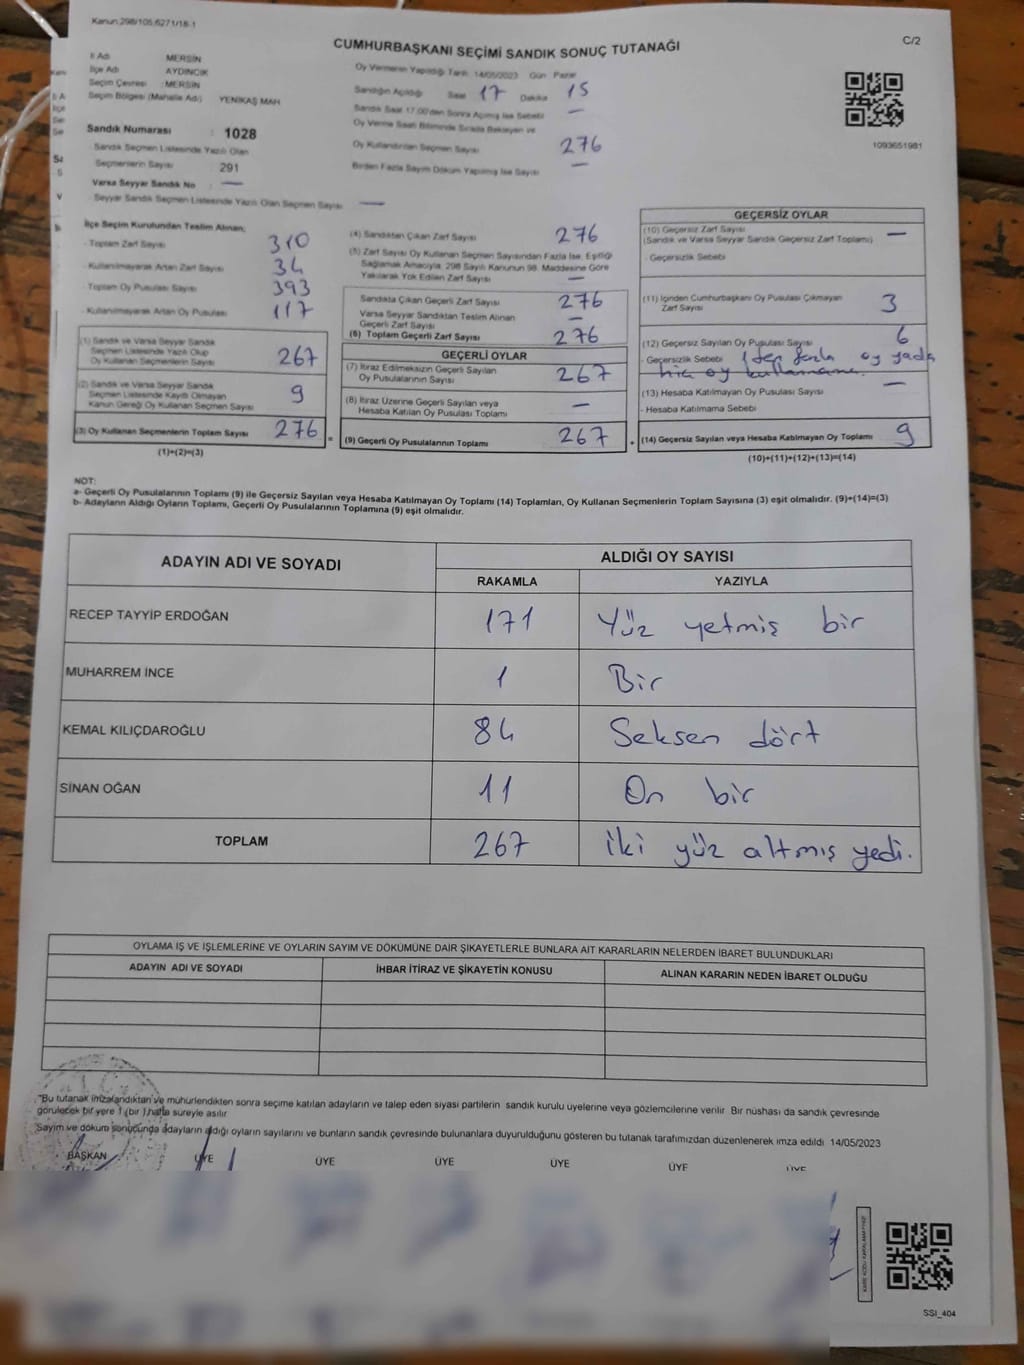 Kanun.298/105,6271/18-1
C/2
CUMHURBAŞKANI SEÇİMİ SANDIK SONUÇ TUTANAĞI
İl Adı MERSİN
İlçe Adı AYDINCIK
Seçim Çevresi : MERSİN
Seçim Bölgesi (Mahalle Adı) YENİKAŞ MAH
Sandık Numarası : 1028
Sandık Seçmen Listesinde Yazılı Olan
Seçmenlerin Sayısı 291
Varsa Seyyar Sandık No : —
Seyyar Sandık Seçmen Listesinde Yazılı Olan Seçmen Sayısı —
Oy Vermenin Yapıldığı Tarih 14/05/2023 Gün Pazar
Sandığın Açıldığı Saat 17 Dakika 15
Sandık Saat 17.00'den Sonra Açılmış İse Sebebi —
Oy Verme Saati Bitiminde Sırada Bekleyen ve
Oy Kullandırılan Seçmen Sayısı 276
Birden Fazla Sayım Döküm Yapılmış İse Sayısı —
1093651981
İlçe Seçim Kurulundan Teslim Alınan;
- Toplam Zarf Sayısı 310
- Kullanılmayarak Artan Zarf Sayısı 34
- Toplam Oy Pusulası Sayısı 393
- Kullanılmayarak Artan Oy Pusulası 117
(1) Sandık ve Varsa Seyyar Sandık
Seçmen Listesinde Yazılı Olup
Oy Kullanan Seçmenlerin Sayısı 267
(2) Sandık ve Varsa Seyyar Sandık
Seçmen Listesinde Kaydı Olmayan
Kanun Gereği Oy Kullanan Seçmen Sayısı 9
(3) Oy Kullanan Seçmenlerin Toplam Sayısı 276 =
(1)+(2)=(3)
(4) Sandıktan Çıkan Zarf Sayısı 276
(5) Zarf Sayısı Oy Kullanan Seçmen Sayısından Fazla İse, Eşitliği
Sağlamak Amacıyla, 298 Sayılı Kanunun 98. Maddesine Göre
Yakılarak Yok Edilen Zarf Sayısı —
Sandıkta Çıkan Geçerli Zarf Sayısı 276
Varsa Seyyar Sandıktan Teslim Alınan
Geçerli Zarf Sayısı —
(6) Toplam Geçerli Zarf Sayısı 276
GEÇERLİ OYLAR
(7) İtiraz Edilmeksizin Geçerli Sayılan
Oy Pusulalarının Sayısı 267
(8) İtiraz Üzerine Geçerli Sayılan veya
Hesaba Katılan Oy Pusulası Toplamı —
(9) Geçerli Oy Pusulalarının Toplamı 267 +
GEÇERSİZ OYLAR
(10) Geçersiz Zarf Sayısı —
(Sandık ve Varsa Seyyar Sandık Geçersiz Zarf Toplamı)
- Geçersizlik Sebebi
(11) İçinden Cumhurbaşkanı Oy Pusulası Çıkmayan
Zarf Sayısı 3
(12) Geçersiz Sayılan Oy Pusulası Sayısı 6
- Geçersizlik Sebebi 1 den fazla oy yada
hiç oy kullanmama.
(13) Hesaba Katılmayan Oy Pusulası Sayısı —
- Hesaba Katılmama Sebebi
(14) Geçersiz Sayılan veya Hesaba Katılmayan Oy Toplamı 9
(10)+(11)+(12)+(13)=(14)
NOT:
a- Geçerli Oy Pusulalarının Toplamı (9) ile Geçersiz Sayılan veya Hesaba Katılmayan Oy Toplamı (14) Toplamları, Oy Kullanan Seçmenlerin Toplam Sayısına (3) eşit olmalıdır. (9)+(14)=(3)
b- Adayların Aldığı Oyların Toplamı, Geçerli Oy Pusulalarının Toplamına (9) eşit olmalıdır.
ADAYIN ADI VE SOYADI ALDIĞI OY SAYISI
RAKAMLA YAZIYLA
RECEP TAYYİP ERDOĞAN 171 Yüz yetmiş bir
MUHARREM İNCE 1 Bir
KEMAL KILIÇDAROĞLU 84 Seksen dört
SİNAN OĞAN 11 On bir
TOPLAM 267 iki yüz altmış yedi.
OYLAMA İŞ VE İŞLEMLERİNE VE OYLARIN SAYIM VE DÖKÜMÜNE DAİR ŞİKAYETLERLE BUNLARA AİT KARARLARIN NELERDEN İBARET BULUNDUKLARI
ADAYIN ADI VE SOYADI İHBAR İTİRAZ VE ŞİKAYETİN KONUSU ALINAN KARARIN NEDEN İBARET OLDUĞU
"Bu tutanak imzalandıktan ve mühürlendikten sonra seçime katılan adayların ve talep eden siyasi partilerin sandık kurulu üyelerine veya gözlemcilerine verilir. Bir nüshası da sandık çevresinde
görülecek bir yere 1 (bir) hafta süreyle asılır
Sayım ve döküm sonucunda adayların aldığı oyların sayılarını ve bunların sandık çevresinde bulunanlara duyurulduğunu gösteren bu tutanak tarafımızdan düzenlenerek imza edildi 14/05/2023
BAŞKAN ÜYE ÜYE ÜYE ÜYE ÜYE ÜYE
SSI_404